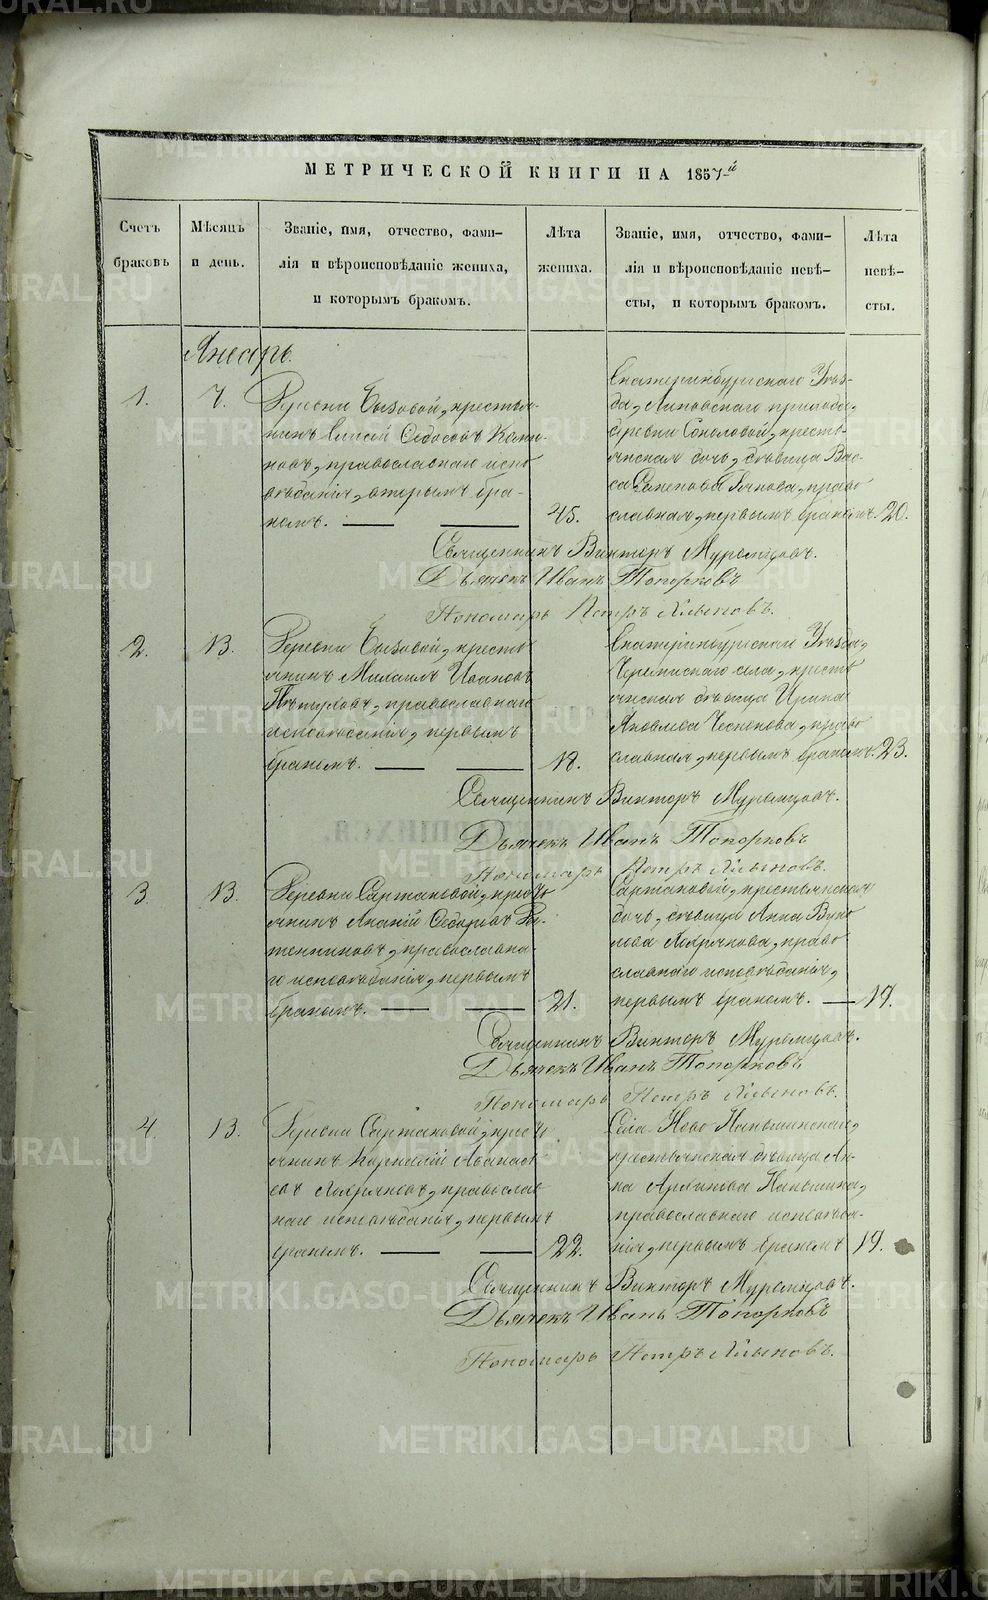 МЕТРИЧЕСКОЙ КНИГИ НА 1857-й
Счетъ браковъ
Мѣсяцъ и день.
Званіе, имя, отчество, фами-
лія и вѣроисповѣданіе жениха,
и которымъ бракомъ.
Лѣта жениха.
Званіе, имя, отчество, фами-
лія и вѣроисповѣданіе невѣ-
сты, и которымъ бракомъ.
Лѣта невѣ-
сты.
Январь.
1.
7.
Деревни крестья-
нинъ Елисей Ѳедосѣевъ
православнаго испо
вѣданія, вторымъ бра-
комъ.
45.
Екатеринбургскаго Уѣз-
да, Липовскаго прихода,
деревни Соколовой, кресть-
янская дочь, дѣвица Вас-
са право
славная, первымъ бракомъ.
20.
Священникъ Викторъ Муромцовъ.
Дьячекъ Иванъ Топорковъ
Пономарь Петръ Хлыновъ.
2.
13.
Деревни кресть
янинъ Михаилъ Ивановъ
Пѣтуховъ, православнаго
исповѣданія, первымъ
бракомъ.
18.
Екатеринбургскаго Уѣзда,
Черемисскаго села, кресть
янская дѣвица Ирина
Яковлева Чеснокова, право
славная, первымъ бракомъ.
23.
Священникъ Викторъ Муромцовъ.
Дьячекъ Иванъ Топорковъ
Пономарь Петръ Хлыновъ.
3
13.
Деревни Сартаковой, кресть
янинъ Ананій Ѳедоровъ
православна
го исповѣданія, первымъ
бракомъ.
21.
Сартаковой, крестьянская
дочь, дѣвица Анна Вуко
лова право
славнаго исповѣданія,
первымъ бракомъ.
17.
Священникъ Викторъ Муромцовъ.
Дьячекъ Иванъ Топорковъ
Пономарь Петръ Хлыновъ.
4.
13.
Деревни Сартаковой, кресть
янинъ Корнилій Аѳанась
евъ православ
наго исповѣданія, первымъ
бракомъ.
22.
Села Ново
крестьянская дѣвица Ан-
на
православнаго исповѣда-
нія, первымъ бракомъ
19.
Священникъ Викторъ Муромцовъ.
Дьячекъ Иванъ Топорковъ
Пономарь Петръ Хлыновъ.
METRIKI.GASO-URAL.RU